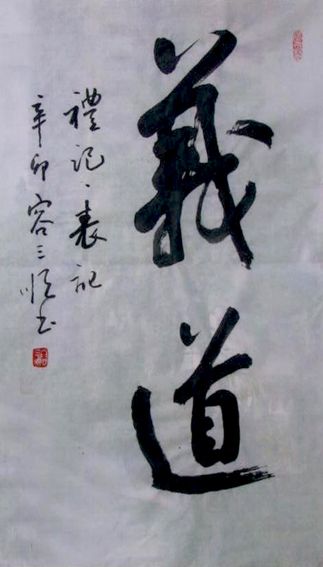 義道
禮記、表記
辛卯容三順书